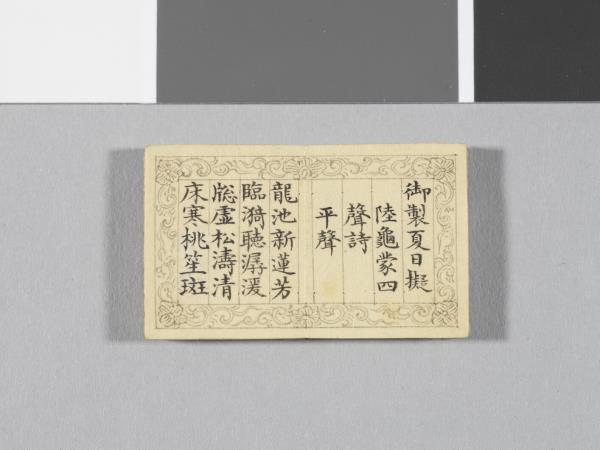 御製夏日擬
陸龜蒙四
聲詩
平聲
龍池新蓮芳
臨漪聽潺湲
牕虛松濤清
床寒桃笙斑